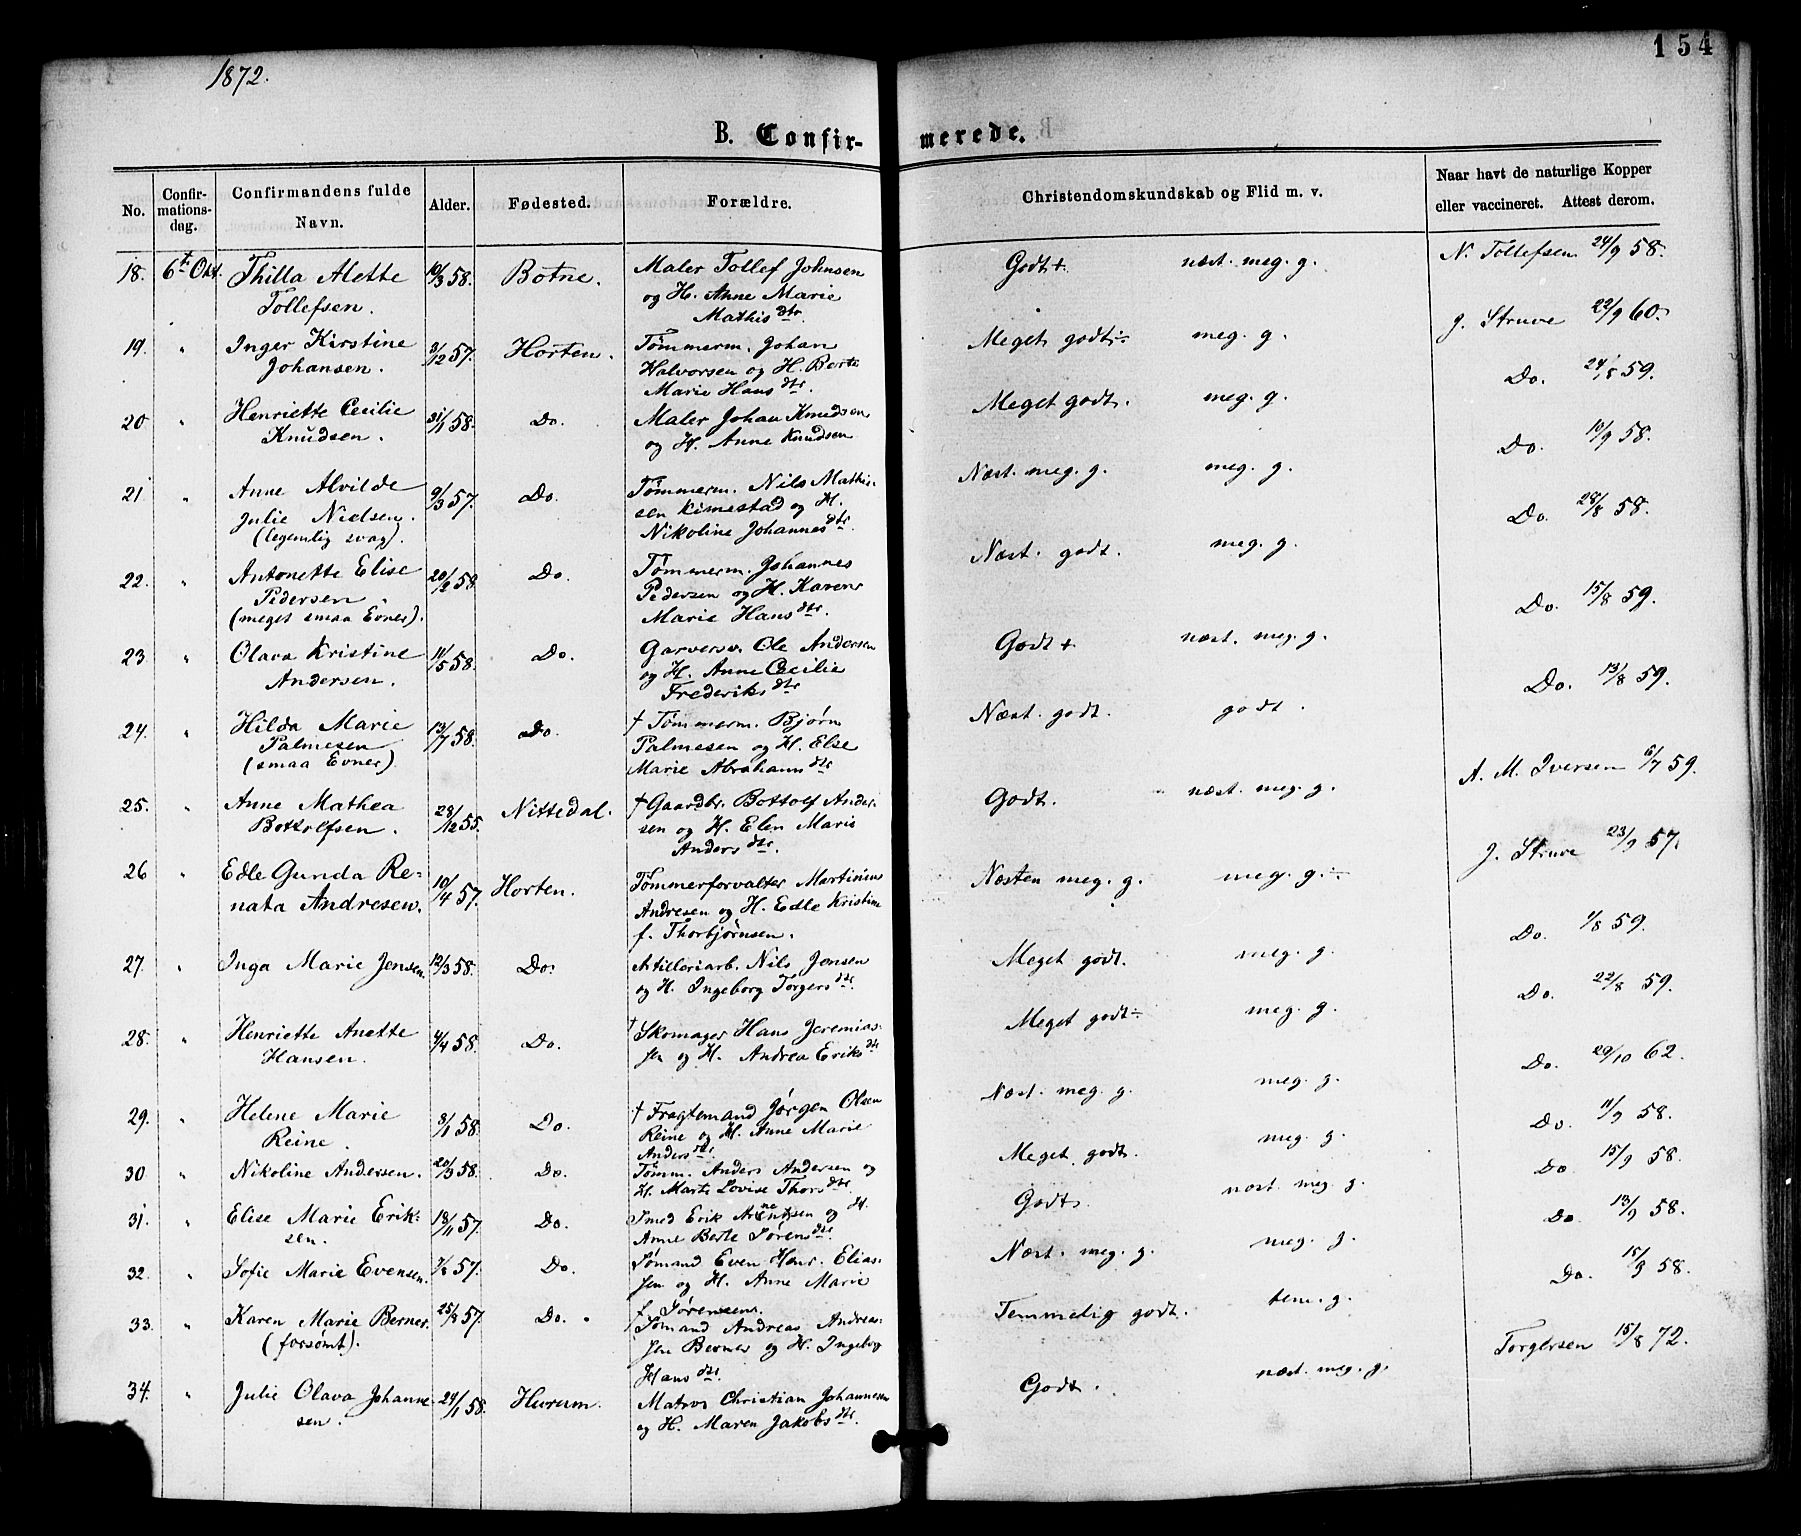 1872.
154
B. Confir-
merede.
No.
Confir-
mations-
dag.
Confirmandens fulde
Navn.
Alder.
Fødested.
Forældre.
Christendomskundskab og Flid m. v.
Naar havt de naturlige Kopper
eller vaccineret. Attest derom.
18. 6te Okt. Thilla Alette 10/3 58. Botne. Maler Tollef Johnsen Godt + næst. meg. g. N. Tollefsen 24/9 58.
Tollefsen. og H. Anne Marie
Mathisdtr.
19. " Inger Kirstine 3/12 57. Horten. Tømmerm. Johan Meget godt ÷ meg. g. J. Struve 22/9 60.
Johansen. Halvorsen og H. Berte
Marie Hansdtr.
20 " Henriette Cecilie 31/1 58. Do. Maler Johan Knudsen Meget godt. meg. g. Do. 24/8 59.
Knudsen. og H. Anne Knudsen
21. " Anne Alvilde 9/3 57. Do. Tømmerm. Nils Mathis- Næst. meg. g. meg. g. Do. 10/9 58.
Julie Nielsen. sen Kimestad og H.
(legemlig svag). Nikoline Johannesdtr
22. " Antonette Elise 20/2 58 Do. Tømmerm. Johannes Næst. godt. meg. g. Do. 28/8 58.
Pedersen. Pedersen og H. Karen
(meget smaa Evner). Marie Hansdtr
23. " Olava Kristine 11/5 58. Do. Garversv. Ole Andersen Godt + næst. meg. g. Do. 15/8 59.
Andersen. og H. Anne Cecilie
Frederiksdtr
24. " Hilda Marie 13/7 58. Do. † Tømmerm. Bjørn Næst. godt. godt. Do. 13/8 59.
Palmesen Palmesen og H. Else
(smaa Evner). Marie Abrahamsdtr
25. " Anne Mathea 28/12 55. Nittedal. † Gaardbr. Bottolf Ander- Godt. næst. meg. g. A. M. Iversen 6/7 59.
Bottolfsen. sen og H. Elen Marie
Andersdtr.
26 " Edle Gunda Re- 10/4 57. Horten. Tømmerforvalter Martinius Næsten meg. g. meg. g. ÷ J. Struve 23/9 57.
nata Andresen. Andresen og H. Edle Kristine
f. Thorbjørnsen.
27. " Inga Marie Jensen. 12/3 58. Do. Artilleriarb. Nils Jensen Meget godt. meg. g. Do. 1/8 59.
og H. Ingeborg Torgersdtr.
28. " Henriette Anette 4/4 58. Do. † Skomager Hans Jeremias- Meget godt ÷ meg. g. Do. 22/8 59.
Hansen. sen og H. Andrea Eriksdtr
29. " Helene Marie 3/1 58. Do. † Fragtemand Jørgen Olsen Næst. meg. g. meg. g. Do. 29/10 62.
Reine. Reine og H. Anne Marie
Andersdtr.
30. " Nikoline Andersen. 20/3 58. Do. Tømm. Anders Andersen og Meget godt. meg. g. Do. 11/9 58.
H. Marte Lovise Thorsdtr.
31. " Elise Marie Erik- 18/11 57. Do. Smed Erik Arentsen og H. Godt. næst. meg. g. Do. 15/9 58.
sen. Anne Berte Sørensdtr.
32. " Sofie Marie Evensen. 7/8 57. Do. Sømand Even Henr. Elias- Næst. meg. g. meg. g. Do. 13/9 58.
sen og H. Anne Marie
f. Sørensen.
33. " Karen Marie Berner. 25/8 57. Do. † Sømand Andreas Andreas- Temmelig godt. tem. g. Do. 15/9 58.
(forsømt). sen Berner og H. Ingeborg
Hansdtr.
34. " Julie Olava Johanne- 24/1 58. Hurum. Matros Christian Johannesen Godt. næst. meg. g. Torgersen 15/8 72.
sen. og H. Maren Jakobsdtr.